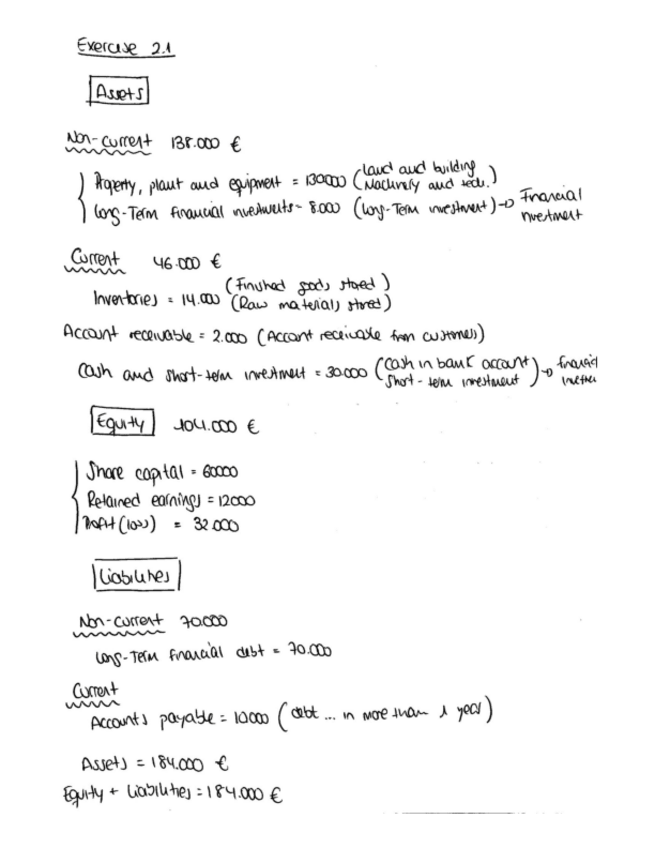 Exercise 2.1
Assets
Non-current 138.000 €
Property, plant and equipment = 130000 (Land and building
Machinery and tech.)
Long-Term financial investments - 8.000 (Long-Term investment) → Financial
investment
Current 46.000 €
Inventories = 14.000 (Finished goods stored)
(Raw materials stored)
Account receivable = 2.000 (Account receivable from customers)
Cash and short-term investment = 30.000 (Cash in bank account
Short-term investment) →
Equity 104.000 €
Share capital = 60000
Retained earnings = 12000
Profit (loss) = 32.000
Liabilities
Non-current 70.000
Long-Term financial debt = 70.000
Current
Accounts payable = 10.000 (debt ... in more than 1 year)
Assets = 184.000 €
Equity + Liabilities = 184.000 €